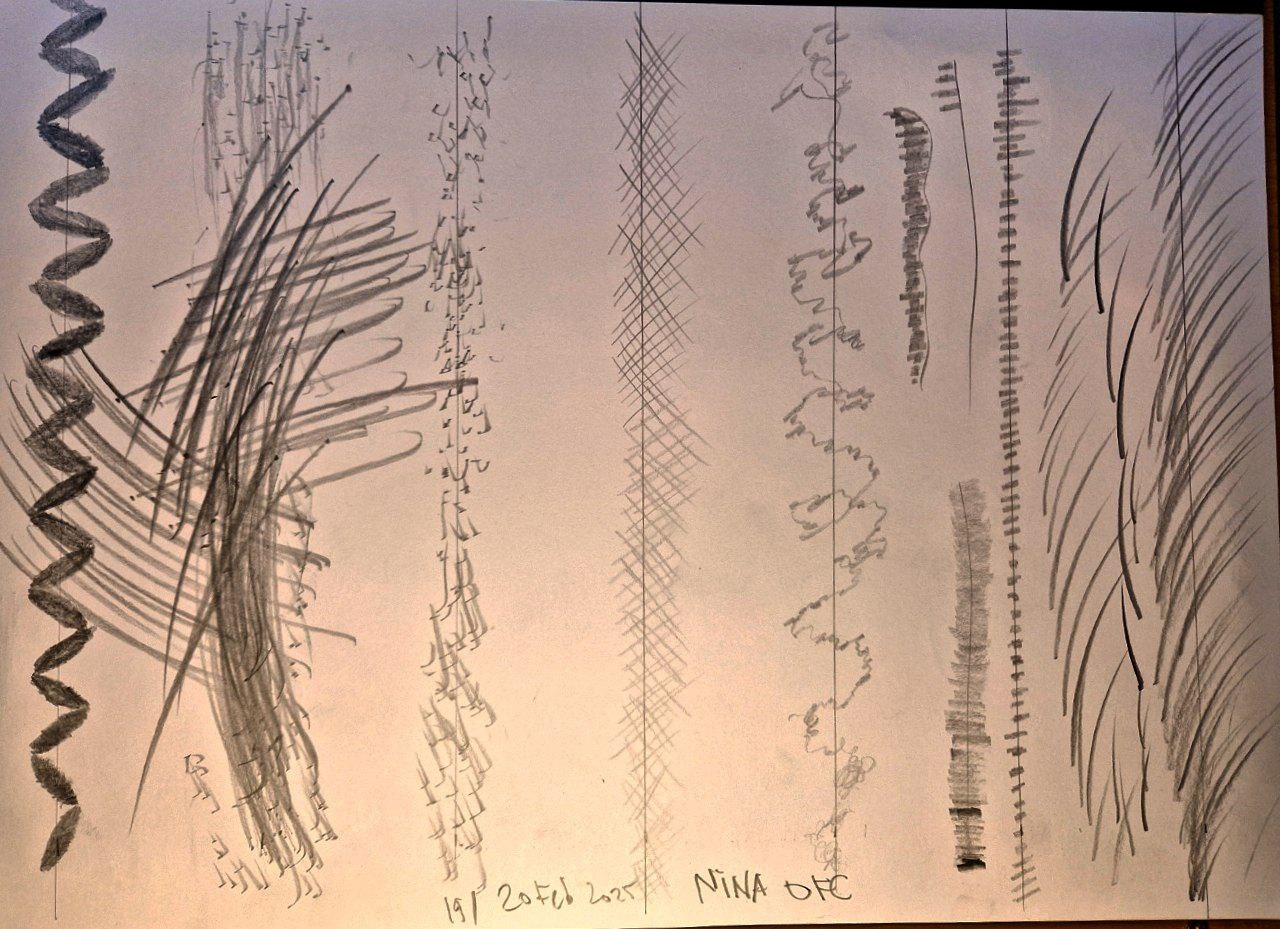 19/ 20 Feb 2025 NINA OFC